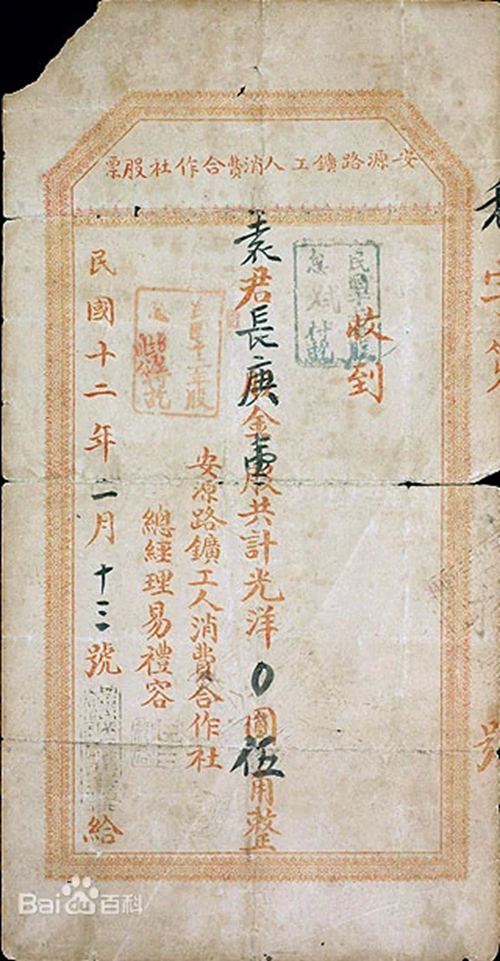 安源路鑛工人消費合作社股票
字第
號
收到
袁君長庚金壹股共計光洋0圓伍角整
安源路鑛工人消費合作社
總經理易禮容
民國十二年二月十三號 給
Bai百科